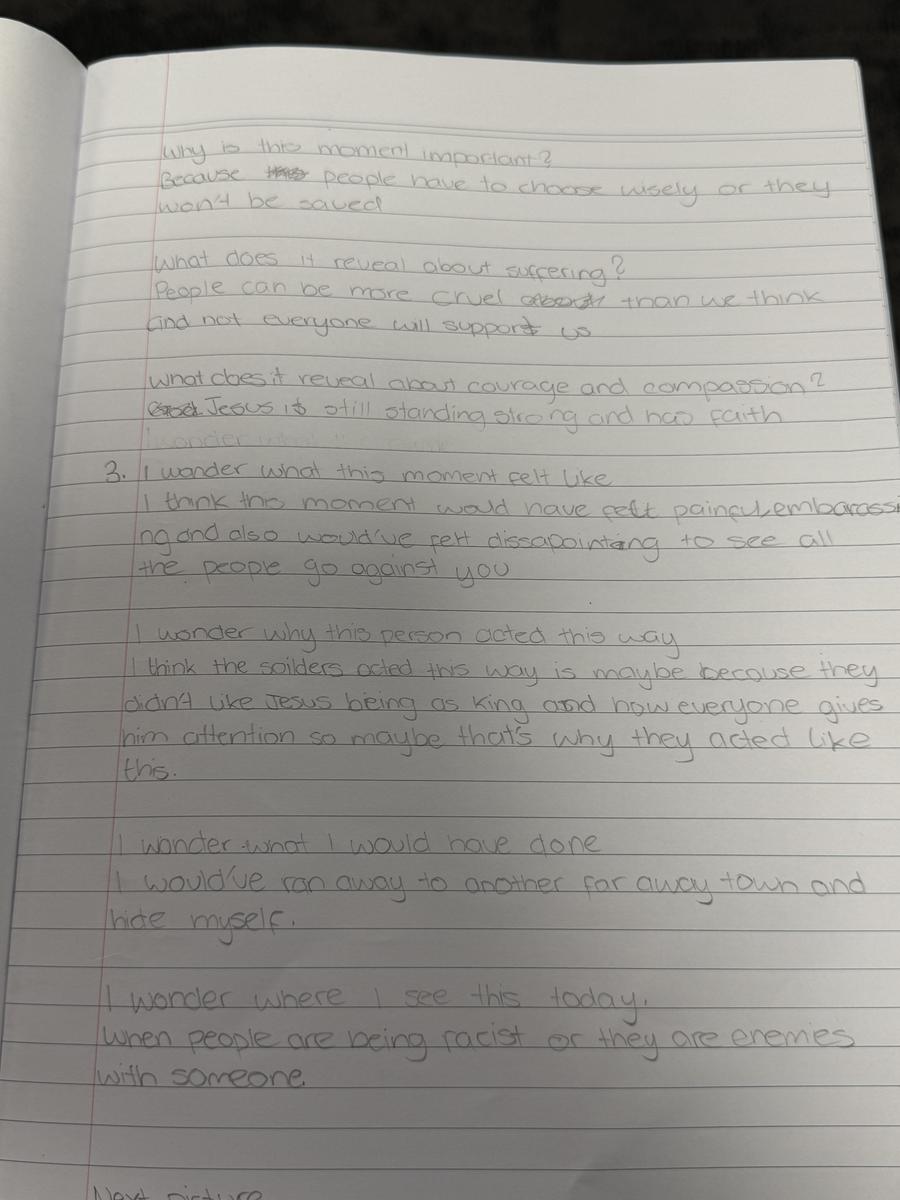 Why is this moment important?
Because people have to choose wisely or they
won't be saved
What does it reveal about suffering?
People can be more cruel than we think
and not everyone will support us
What does it reveal about courage and compassion?
Jesus is still standing strong and has faith
I wonder what
3. I wonder what this moment felt like
I think this moment would have felt painful, embarassi
ng and also would've felt dissapointing to see all
the people go against you
I wonder why this person acted this way
I think the soilders acted this way is maybe because they
didn't like Jesus being as King and how everyone gives
him attention so maybe that's why they acted like
this.
I wonder what I would have done
I would've ran away to another far away town and
hide myself.
I wonder where I see this today.
When people are being racist or they are enemies
with someone.
Next picture